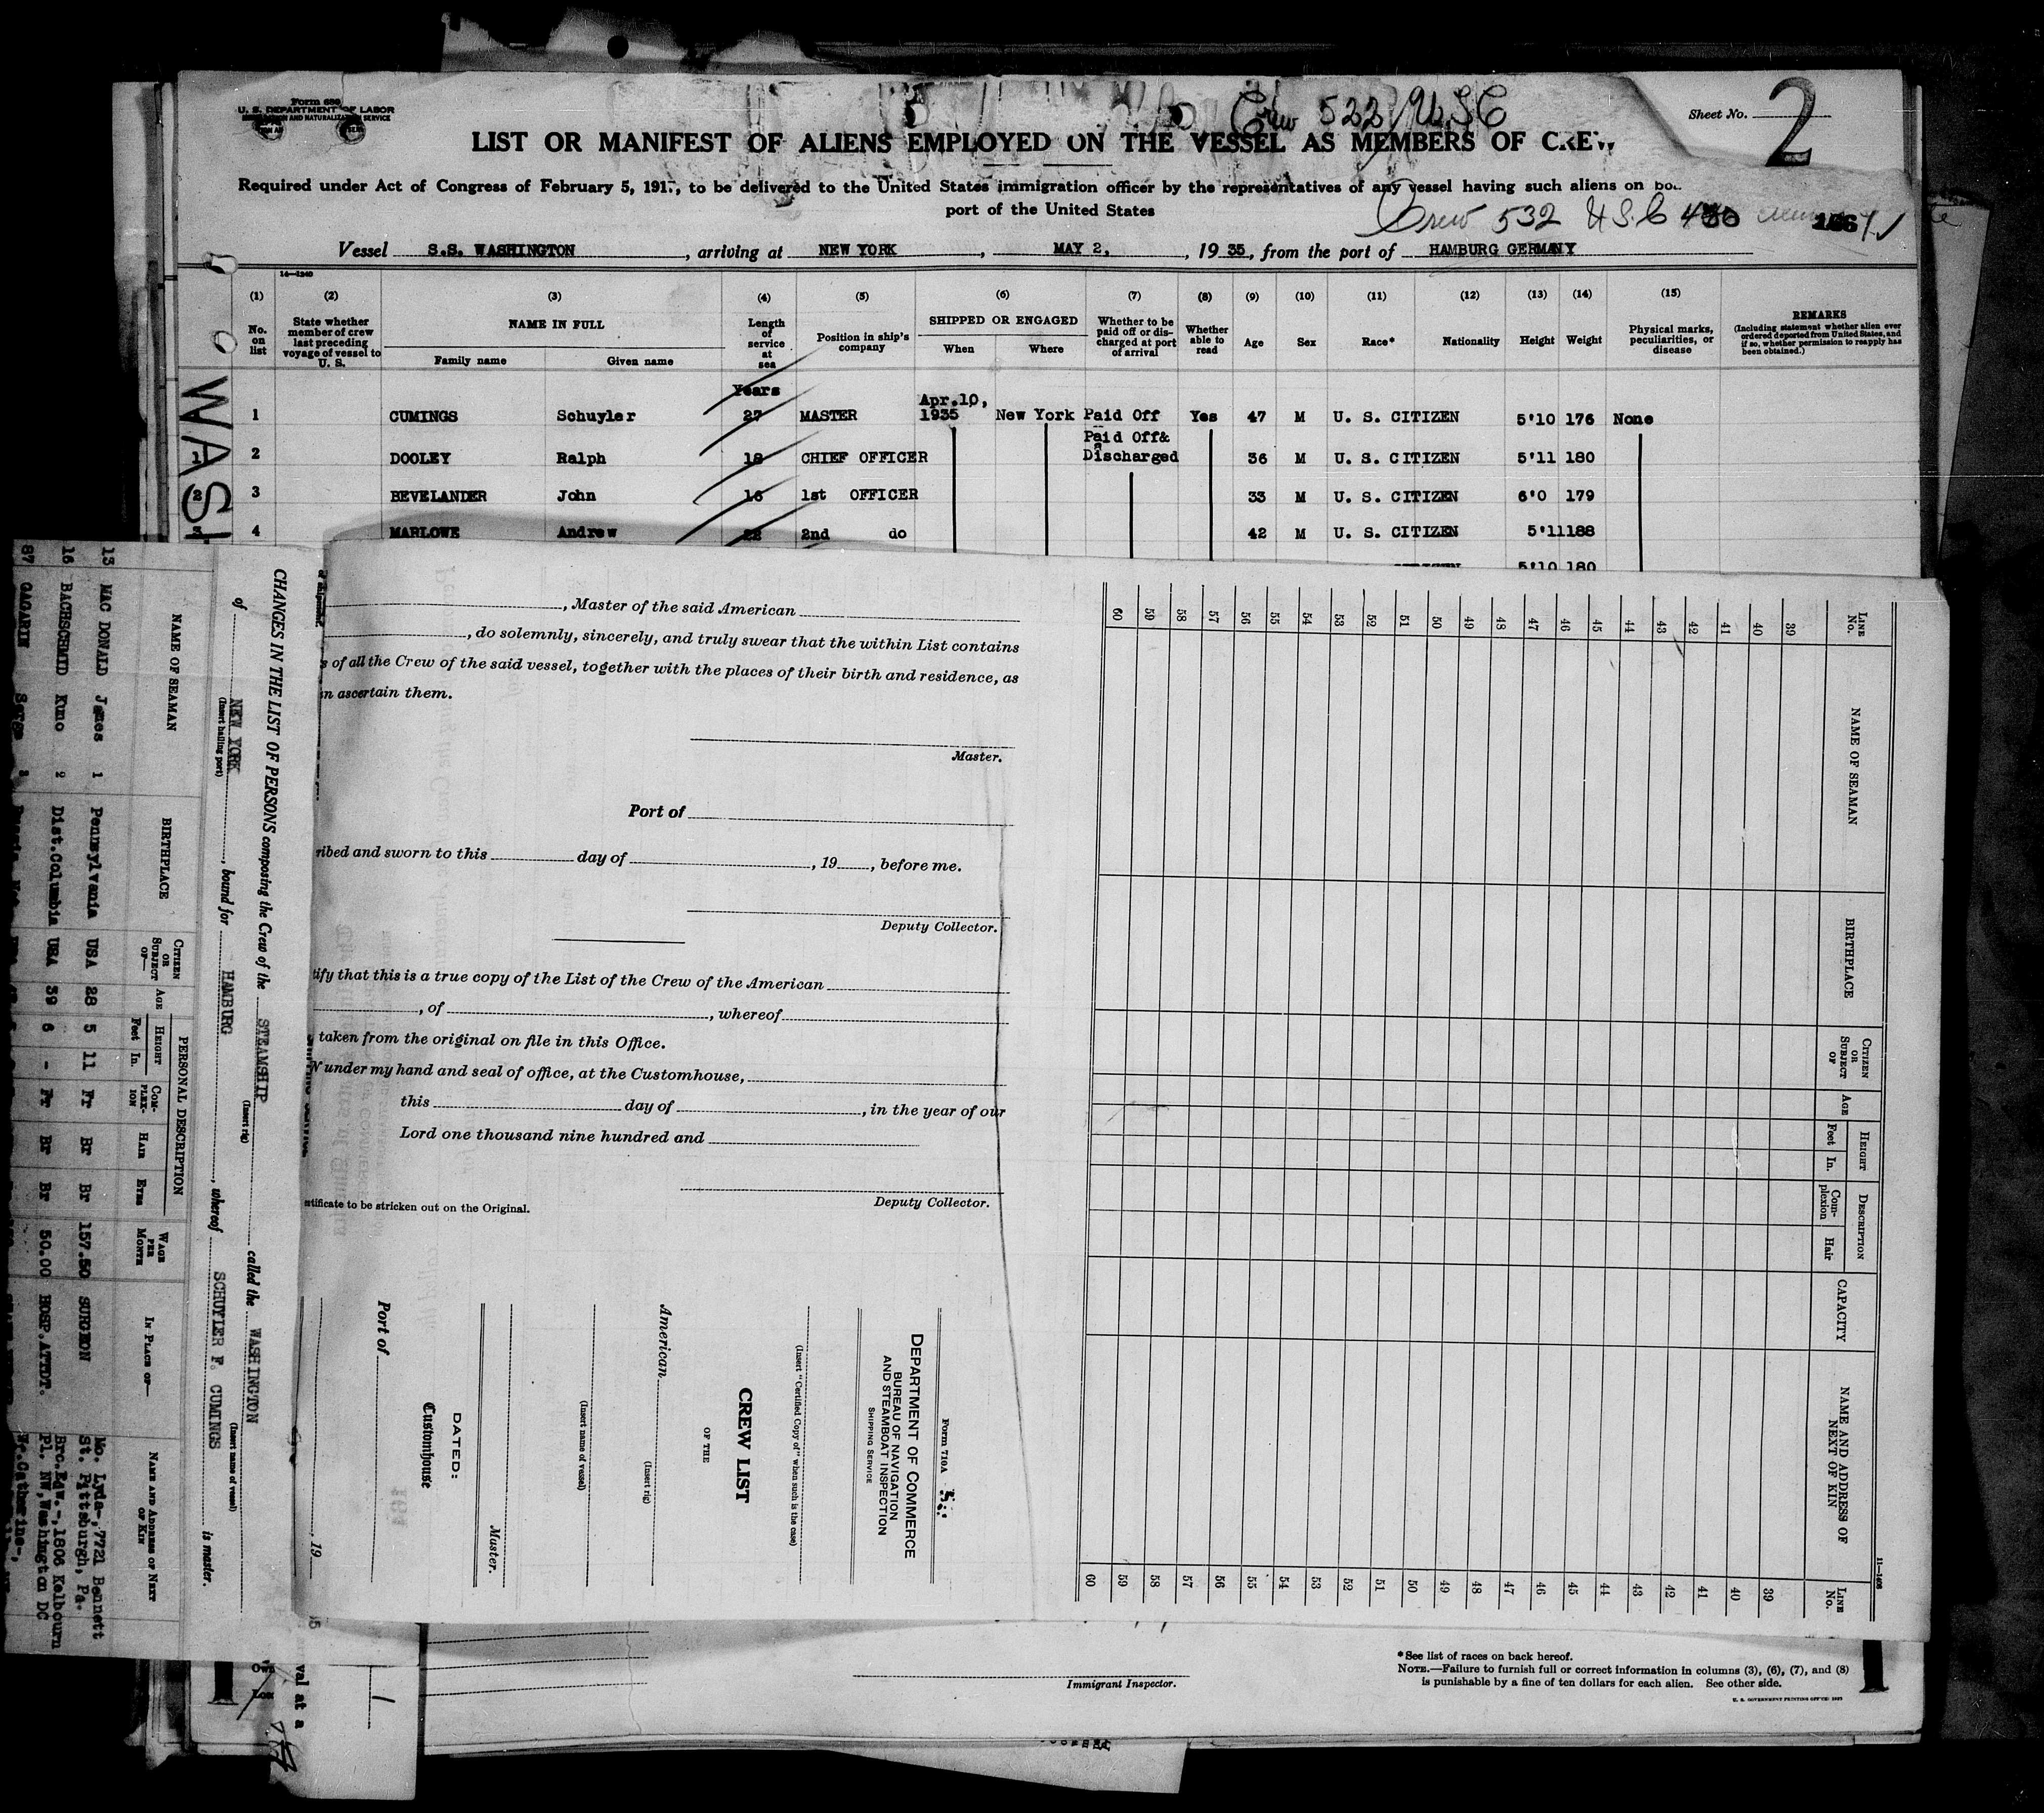 Form 680
U. S. DEPARTMENT OF LABOR
IMMIGRATION AND NATURALIZATION SERVICE
Crew 522 USC
Sheet No. 2
LIST OR MANIFEST OF ALIENS EMPLOYED ON THE VESSEL AS MEMBERS OF CREW
Required under Act of Congress of February 5, 191 , to be delivered to the United States immigration officer by the representatives of any vessel having such aliens on
port of the United States
Crew 532 U.S.C
Vessel S.S. WASHINGTON, arriving at NEW YORK, MAY 2, 1935, from the port of HAMBURG GERMANY
14-1240
(1) (2) (3) (4) (5) (6) (7) (8) (9) (10) (11) (12) (13) (14) (15)
No. on list
State whether member of crew last preceding voyage of vessel to U. S.
NAME IN FULL
Family name Given name
Length of service at sea
Position in ship's company
SHIPPED OR ENGAGED
When Where
Whether to be paid off or discharged at port of arrival
Whether able to read
Age Sex Race* Nationality Height Weight
Physical marks, peculiarities, or disease
REMARKS
(Including statement whether alien ever ordered deported from United States, and if so, whether permission to reapply has been obtained.)
Years
1 CUMINGS Schuyler 27 MASTER Apr.10, 1935 New York Paid Off Yes 47 M U. S. CITIZEN 5'10 176 None
1 2 DOOLEY Ralph 18 CHIEF OFFICER Paid Off& Discharged 36 M U. S. CITIZEN 5'11 180
2 3 BEVELANDER John 16 1st OFFICER 33 M U. S. CITIZEN 6'0 179
3 4 MARLOWE Andrew 22 2nd do 42 M U. S. CITIZEN 5'11 188
5'10 180
WASH
, Master of the said American
, do solemnly, sincerely, and truly swear that the within List contains
s of all the Crew of the said vessel, together with the places of their birth and residence, as
n ascertain them.
Master.
Port of
ribed and sworn to this day of , 19 , before me.
Deputy Collector.
tify that this is a true copy of the List of the Crew of the American
, of , whereof
taken from the original on file in this Office.
N under my hand and seal of office, at the Customhouse,
this day of , in the year of our
Lord one thousand nine hundred and
Deputy Collector.
rtificate to be stricken out on the Original.
Form 710A
DEPARTMENT OF COMMERCE
BUREAU OF NAVIGATION
AND STEAMBOAT INSPECTION
SHIPPING SERVICE
(Insert "Certified Copy of" when such is the case)
CREW LIST
OF THE
American
(Insert rig)
(Insert name of vessel)
Master.
DATED:
Customhouse
Port of
, 19
LINE No. NAME OF SEAMAN BIRTHPLACE CITIZEN OR SUBJECT OF AGE HEIGHT Feet In. DESCRIPTION Complexion Hair CAPACITY NAME AND ADDRESS OF NEXT OF KIN LINE No.
11-1408
39 39
40 40
41 41
42 42
43 43
44 44
45 45
46 46
47 47
48 48
49 49
50 50
51 51
52 52
53 53
54 54
55 55
56 56
57 57
58 58
59 59
60 60
CHANGES IN THE LIST OF PERSONS composing the Crew of the STEAMSHIP called the WASHINGTON
(Insert rig) (Insert name of vessel)
of NEW YORK, bound for HAMBURG, whereof SCHUYLER F. CUMINGS is master.
(Insert hailing port)
NAME OF SEAMAN BIRTHPLACE CITIZEN OR SUBJECT OF— AGE PERSONAL DESCRIPTION HEIGHT Feet In. COMPLEXION HAIR EYES WAGE PER MONTH IN PLACE OF— NAME AND ADDRESS OF NEXT OF KIN
13 MAC DONALD James 1 Pennsylvania USA 28 5 11 Fr Br Br 157.50 SURGEON Mo. Lyda-,7721 Bennett St. Pittsburgh, Pa.
16 BACHSCHMID Kuno 2 Dist.Columbia USA 39 6 - Fr Br Br 50.00 HOSP.ATTDT. Bro.Edw.-,1806 Kelbourn Pl. NW,Washington DC
87 GAGARIN Serge 3
Immigrant Inspector.
*See list of races on back hereof.
NOTE.—Failure to furnish full or correct information in columns (3), (6), (7), and (8)
is punishable by a fine of ten dollars for each alien. See other side.
U. S. GOVERNMENT PRINTING OFFICE:
val at a